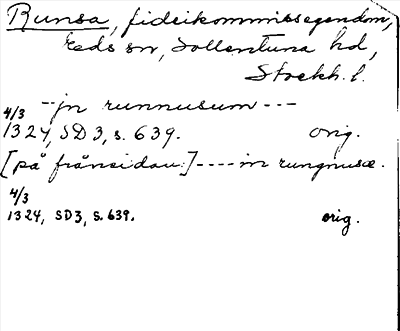 Runsa, fideikommissegendom,
Eds sn, Sollentuna hd,
Stockh. l.
-- jn runnusum ---
4/3
1324, SD 3, s. 639. orig.
[på frånsidan:] ---- in rungnusæ.
4/3
1324, SD3, s. 639. orig.